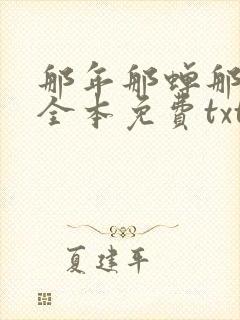 那年那蝉那
全本免费txt
夏建平